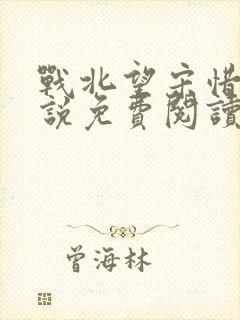 戰北望宋惜
說免費閱讀
曾海林